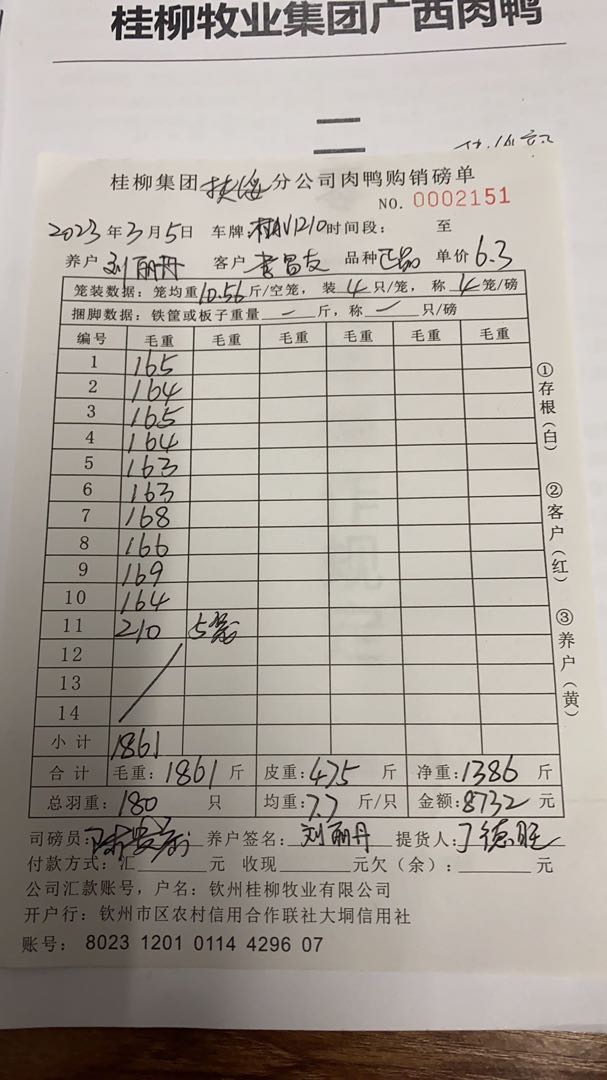 桂柳牧业集团广西肉鸭
二
桂柳集团扶绥分公司肉鸭购销磅单
NO. 0002151
2023年3月5日 车牌: 时间段: 至
养户 刘丽丹 客户 李昌友 品种 正品 单价 6.3
笼装数据:笼均重10.56斤/空笼,装4只/笼,称4笼/磅
捆脚数据:铁筐或板子重量 — 斤,称 — 只/磅
编号 毛重 毛重 毛重 毛重 毛重 毛重
1 165
2 164
3 165
4 164
5 163
6 163
7 168
8 166
9 169
10 164
11 210 5笼
12
13
14
小计 1861
合计 毛重:1861斤 皮重:475斤 净重:1386斤
总羽重:180只 均重:7.7斤/只 金额:8732元
①存根(白)
②客户(红)
③养户(黄)
司磅员: 养户签名:刘丽丹 提货人:丁德旺
付款方式:汇____元 收现____元欠(余):____元
公司汇款账号,户名:钦州桂柳牧业有限公司
开户行:钦州市区农村信用合作联社大垌信用社
账号: 8023 1201 0114 4296 07